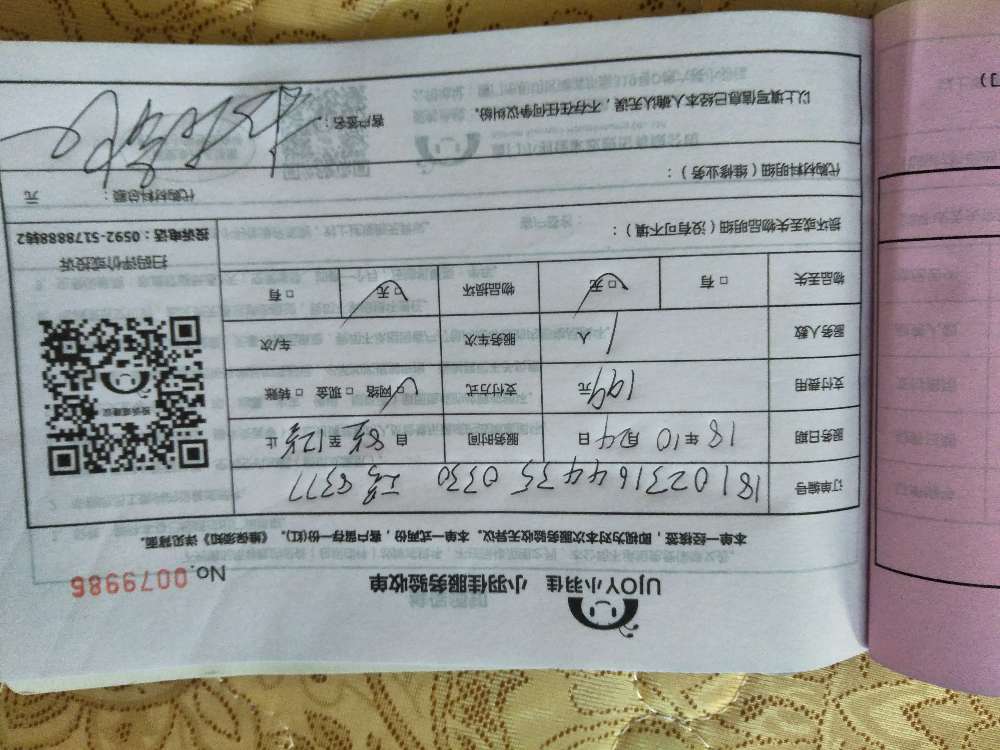 UJOY小羽佳 小羽佳服务验收单
No.0079986
本单一经接签,即视为对本次服务验收无异议。本单一式两份,客户留存一份(红)。《维保须知》详见背面。
订单编号 1810231644350330 8377
服务日期 18年10月24日 服务时间 自 8点 至 12点 止
支付费用 199元 支付方式 □网络 □现金 □转账
服务人数 1人 服务车次 车/次
物品丢失 □有 □无 物品损坏 □无 □有
投诉或建议
扫码评价或投诉
投诉电话:0592-5178888转2
损坏或丢失物品明细(没有可不填):
代购材料明细(维修业务):
代购材料总额: 元
以上填写信息已经本人确认无误,不存在任何争议纠纷。
客户签名: